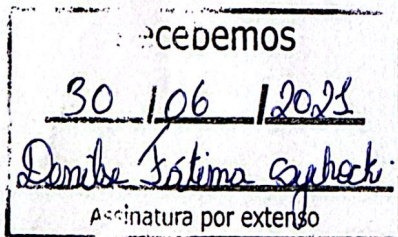 Recebemos
30 / 06 / 2021
Fátima
Assinatura por extenso